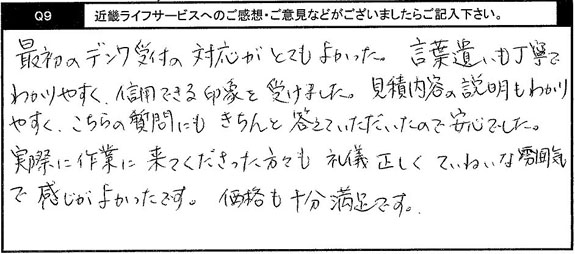 Q9 近畿ライフサービスへのご感想・ご意見などがございましたらご記入下さい。
最初のデンワ受付の対応がとてもよかった。言葉遣いも丁寧で
わかりやすく、信用できる印象を受けました。見積内容の説明もわかり
やすく、こちらの質問にもきちんと答えていただいたので安心でした。
実際に作業に来てくださった方々も礼儀正しくていねいな雰囲気
で感じがよかったです。価格も十分満足です。